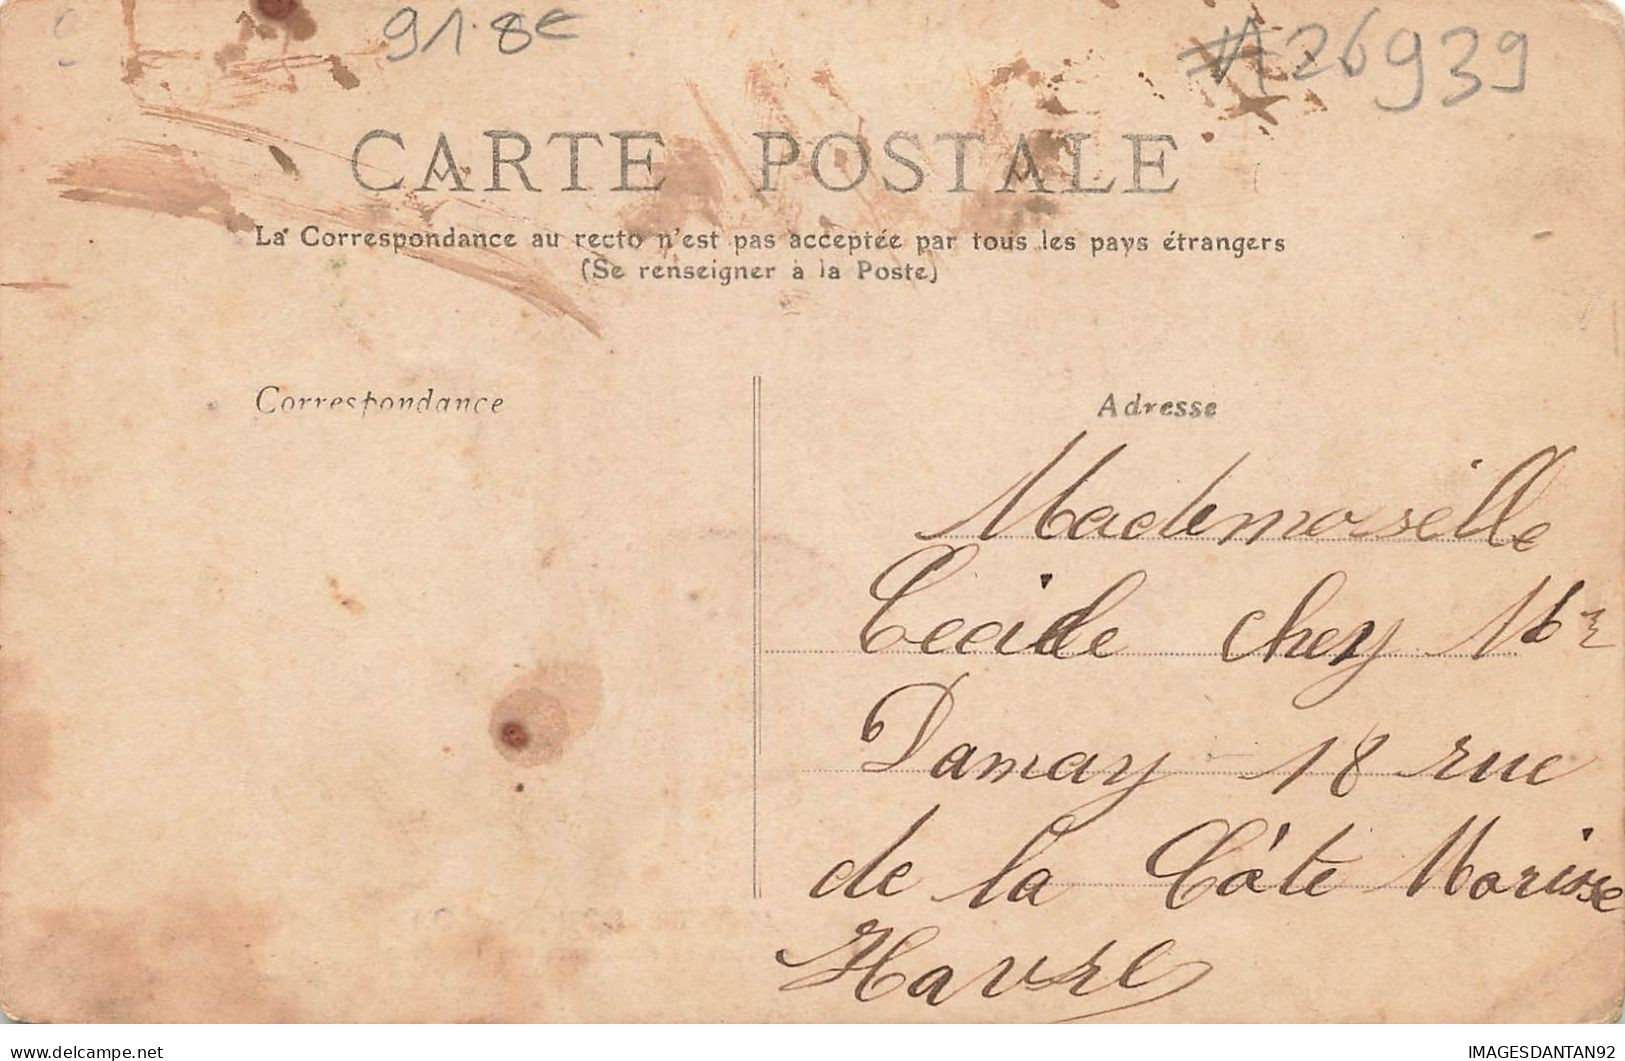 91. 8€
#A26939
CARTE POSTALE
La Correspondance au recto n'est pas acceptée par tous les pays étrangers
(Se renseigner à la Poste)
Correspondance
Adresse
Mademoiselle
Cécile chez Mr
Damay - 18 rue
de la Côte Morisse
Havre
www.delcampe.net
IMAGESDANTAN92